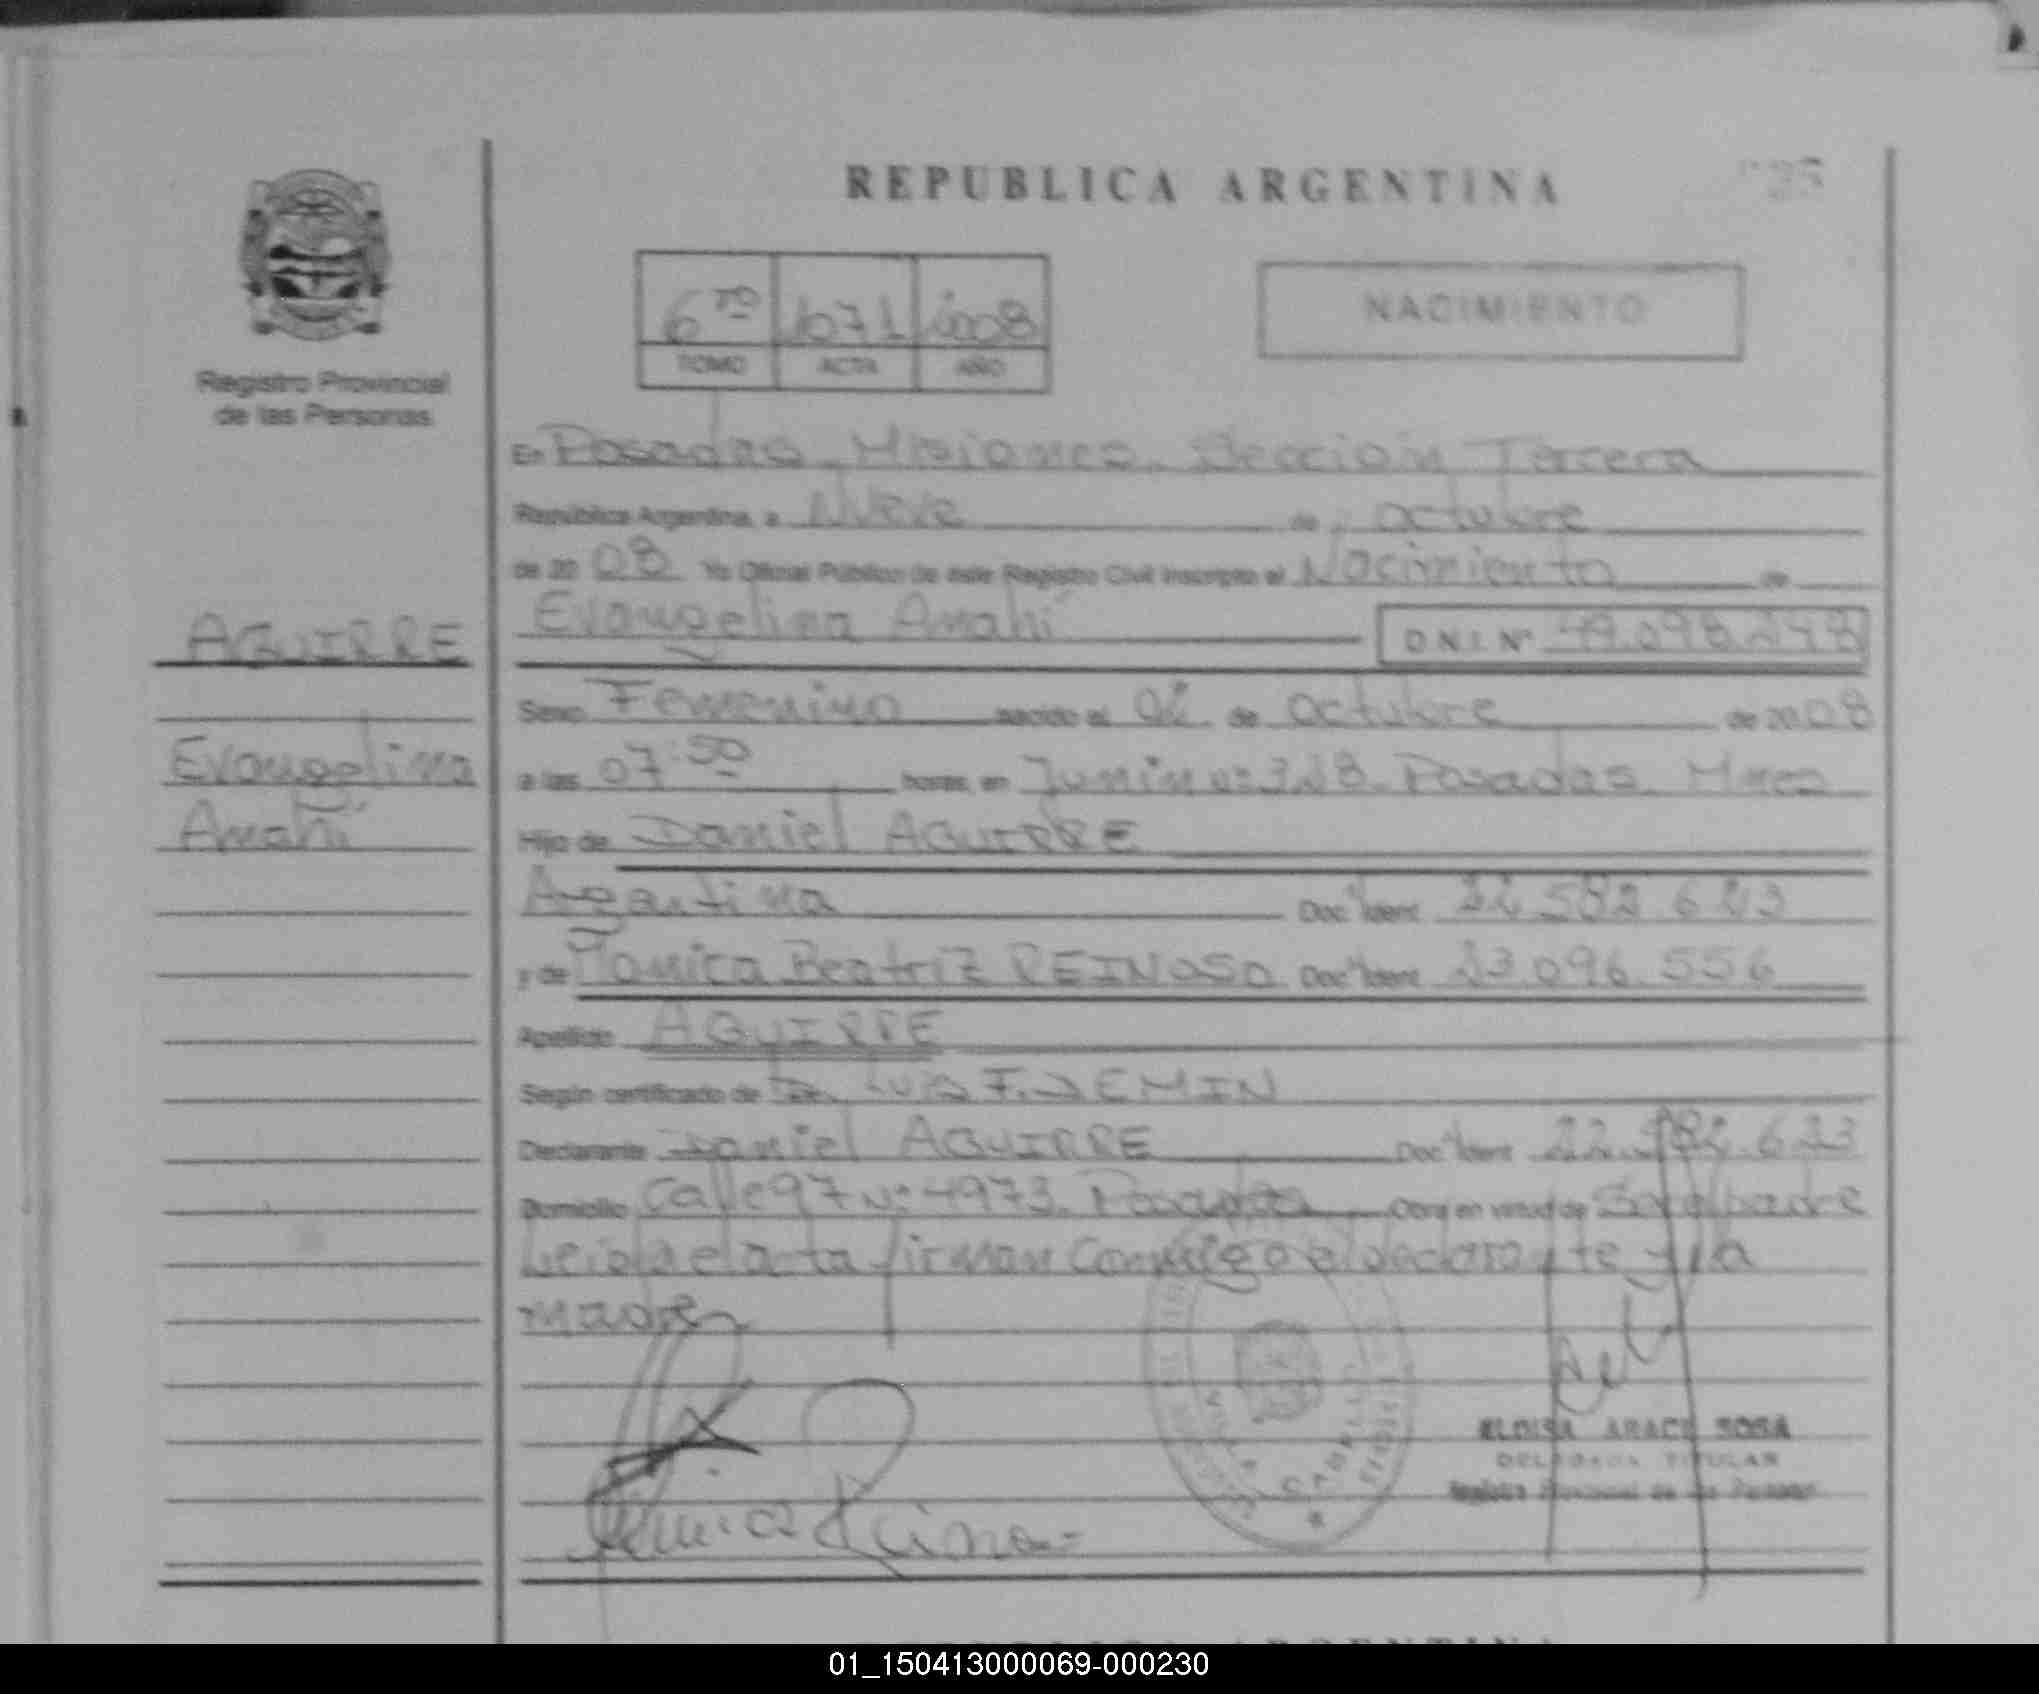 REPUBLICA ARGENTINA
6to 1071 2008
TOMO ACTA AÑO
NACIMIENTO
Registro Provincial
de las Personas
En Posadas, Misiones, Sección Tercera
República Argentina, a Nueve de octubre
de 20 08 Yo Oficial Público de este Registro Civil inscripto el Nacimiento de
AGUIRRE
Evangelina Anahí
Evangelina Anahí D.N.I. Nº 49.098.248
Sexo Femenino nacido el 02 de octubre de 20 08
a las 07:50 horas, en Junin nº 328. Posadas. Mnes
Hijo de Daniel AGUIRRE
Argentina Doc. Ident. 22.582.623
y de Monica Beatriz REINOSO Doc. Ident. 23.096.556
Apellido AGUIRRE
Según certificado de Dr. Luis F. DEMIN
Declarante Daniel AGUIRRE Doc. Ident. 22.582.623
Domicilio Calle 97 Nº 4973. Posadas Obra en virtud de Ser el padre
Leida el acta firman Conmigo el declarante y la
madre
ELOISA ARACI SOSA
DELEGADA TITULAR
Registro Provincial de las Personas
01_150413000069-000230